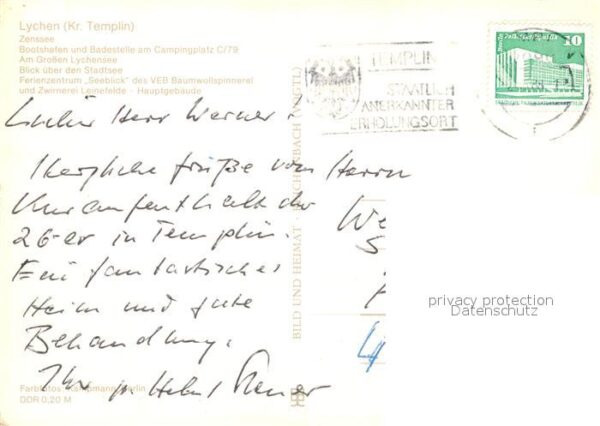 Lychen (Kr. Templin)
Zenssee
Bootshafen und Badestelle am Campingplatz C/79
Am Großen Lychensee
Blick über den Stadtsee
Ferienzentrum „Seeblick“ des VEB Baumwollspinnerei
und Zwirnerei Leinefelde - Hauptgebäude
TEMPLIN
STAATLICH
ANERKANNTER
ERHOLUNGSORT
10
Lieber Herr Werner!
Herzliche Grüße vom Herrn
Kuraufenthalt der
26-er in Templin.
Ein fantastisches
Heim und gute
Behandlung.
Ihr Helmut
BILD UND HEIMAT REICHENBACH (VOGTL)
Farbfotos: Kampmann, Berlin
DDR 0,20 M
We
privacy protection
Datenschutz